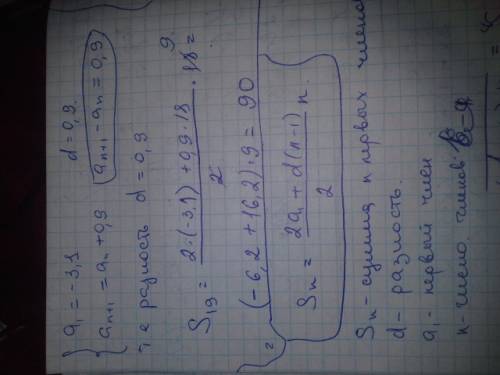 { a₁ = -3,1     d = 0,9
{ aₙ₊₁ = aₙ + 0,9     aₙ₊₁ - aₙ = 0,9
т.е разность d = 0,9
S₁₉ = (2·(-3,1) + 0,9·18) / 2 · 18 9 =
= (-6,2 + 16,2)·9 = 90
Sₙ = (2a₁ + d(n-1)) / 2 n
Sₙ - сумма n первых членов
d - разность.
a₁ - первый член
n - число членов